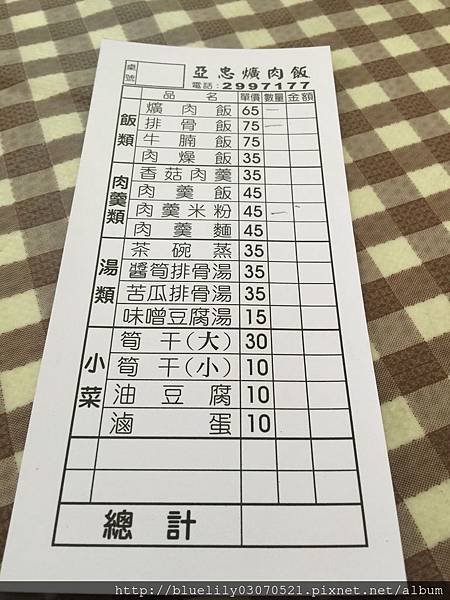 桌號 亞忠爌肉飯
電話：2997177
品名 單價 數量 金額
飯類
爌肉飯 65 一
排骨飯 75 一
牛腩飯 75
肉燥飯 35
肉羹類
香菇肉羹 35
肉羹飯 45
肉羹米粉 45 一
肉羹麵 45
湯類
茶碗蒸 35
醬筍排骨湯 35
苦瓜排骨湯 35
味噌豆腐湯 15
小菜
筍干(大) 30
筍干(小) 10
油豆腐 10
滷蛋 10
總計
http://bluelily03070521.pixnet.net/album